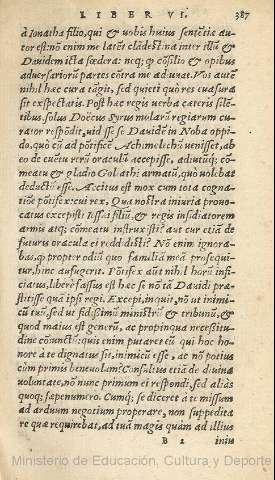 LIBER VI. 387
à Ionatha filio, qui & uobis huius sentētiæ aut
tor est: nō enim me latent clādest na inter illū &
Dauidem icta fœdera: neq; q cōsilio & opibus
aduersariorū partes cōtra me adiuuat. Vos autē
nihil hæc cura tāgit, sed quieti quò res euasura
sit expectatis. Post hæc regis uerba cæteris silen=
tibus, solus Doëcus Syrus mularū regiarum cu=
rator respōdit, uidisse se Dauidē in Noba oppi=
do, quò cū ad pōtificē Achimelechū uenisset, ab
eo de euētu rerū oraculū accepisse, adiutūq; cō=
meatu & gladio Goliathi armatū, quò uolebat
deductū esse. Accitus est mox cum tota cogna=
tiōe pōtifex: cui rex, Qua nostra iniuria prouo=
catus excepisti Iessæi filiū, & regis insidiatorem
armis atq; cōmeatu instruxisti? aut cur etiā de
futuris oracula ei reddidisti? Nō enim ignora=
bas, q propter odiū quo familiā meā prosequi=
tur, hinc aufugerit. Pōtifex aūt nihil horū infi=
ciatus, liberè fassus est hæc se nō tā Dauidi præ=
stitisse quā ipsi regi. Excepi, inquit, nō ut inimi=
cū tuū, sed ut fidissimū ministrū & tribunū, &
quod maius est generū, ac propinqua necessitu=
dine cōiunctū: quis enim putaret eū qui hoc ho=
nore à te dignatus sit, inimicū esse, ac nō potius
cum primis beneuolum? Consultus etiā de diuina
uoluntate, nō nunc primum ei respondi, sed aliâs
quoq; sæpenumero. Cumq; se diceret à te missum
ad arduum negotium properare, non suppedita
re quæ requirebat, ad tuā magis quàm ad illius
B 2 iniu
Ministerio de Educación, Cultura y Deporte